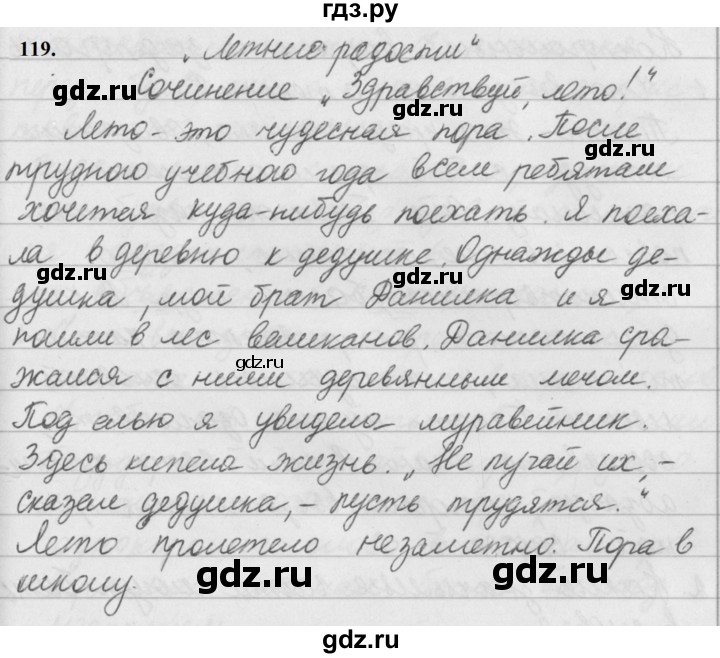 гдз.ру
119. „Летние радости"
Сочинение „Здравствуй, лето!"
gdz.ru gdz.ru
Лето - это чудесная пора. После
трудного учебного года всем ребятам
хочется куда-нибудь поехать. Я поеха-
ла в деревню к дедушке. Однажды де-
gdz.ru gdz.ru
душка, мой брат Данилка и я
пошли в лес великанов. Данилка сра-
gdz.ru
жался с ними деревянным мечом.
Под елью я увидела муравейник.
Здесь кипела жизнь. „Не пугай их, -
сказал дедушка, - пусть трудятся."
gdz.ru gdz.ru
Лето пролетело незаметно. Пора в
школу.
gdz.ru gdz.ru
gdz.ru